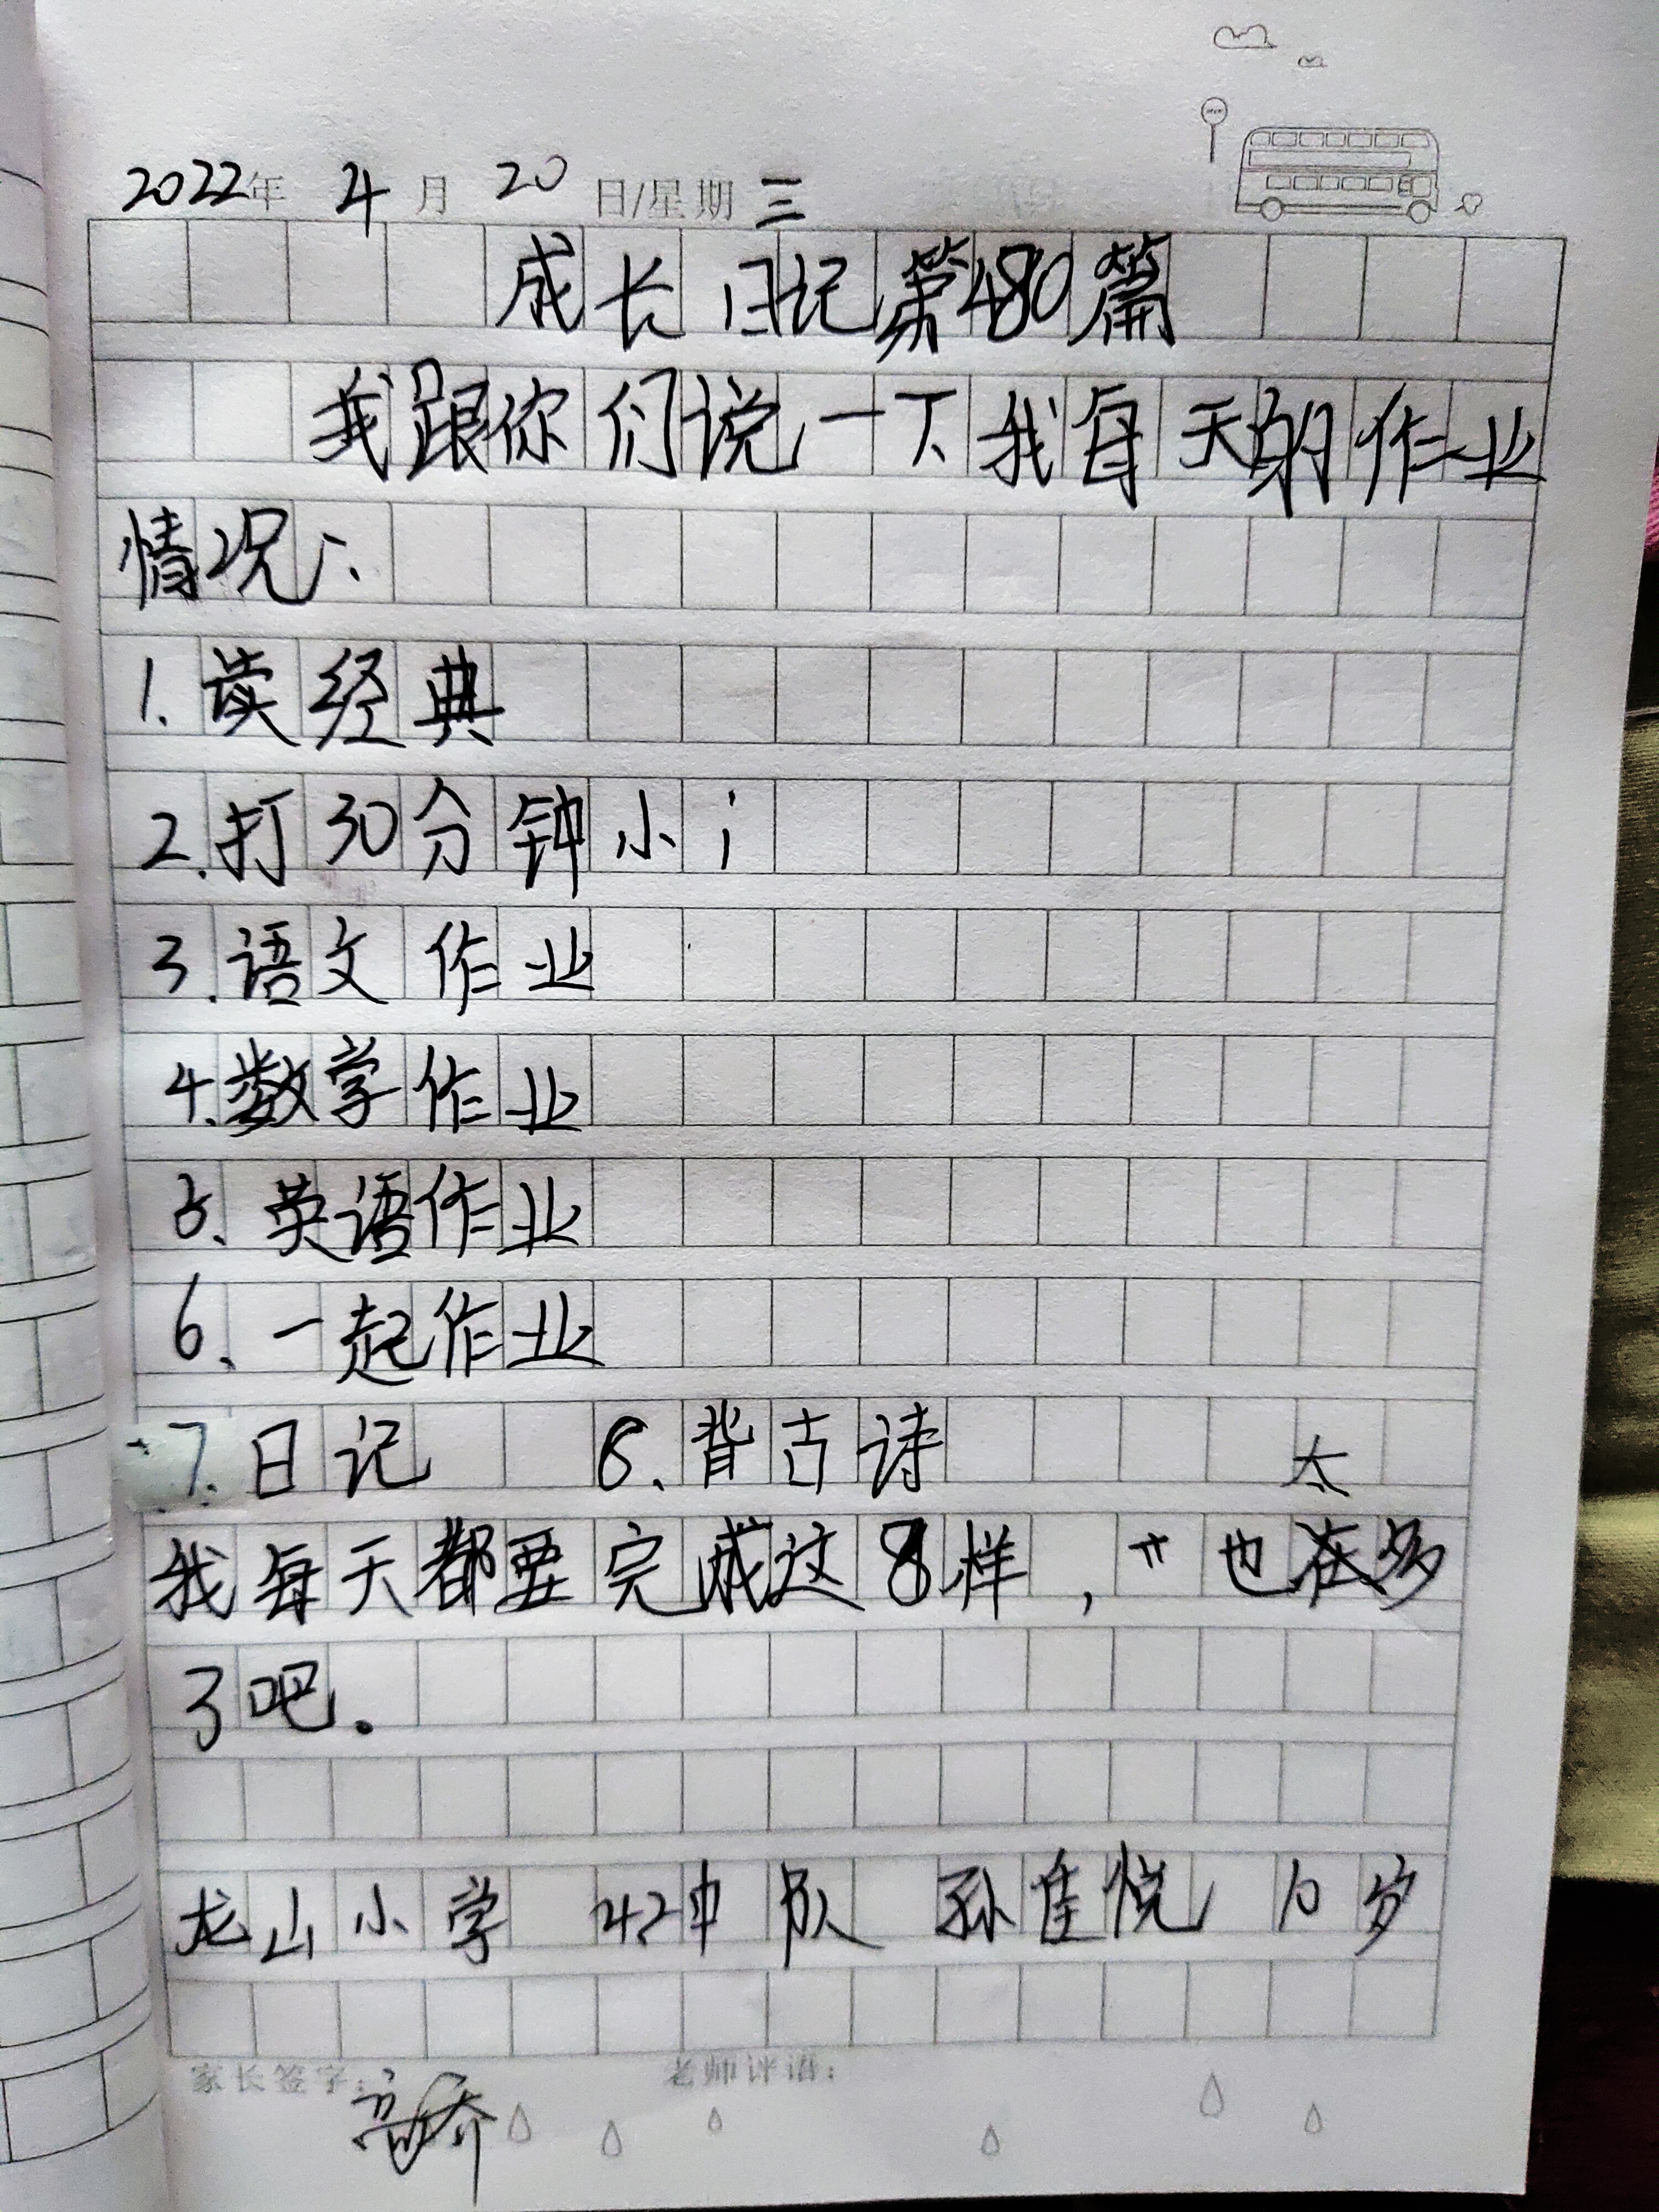 2022年 4月 20日/星期三
成长日记第480篇
我跟你们说一下我每天的作业
情况:
1.读经典
2.打30分钟小i
3.语文作业
4.数学作业
5.英语作业
6.一起作业
7.日记 8.背古诗
太
我每天都要完成这8样,也多
了吧.
龙山小学 42中队 孙佳悦 10岁
家长签字: 老师评语: